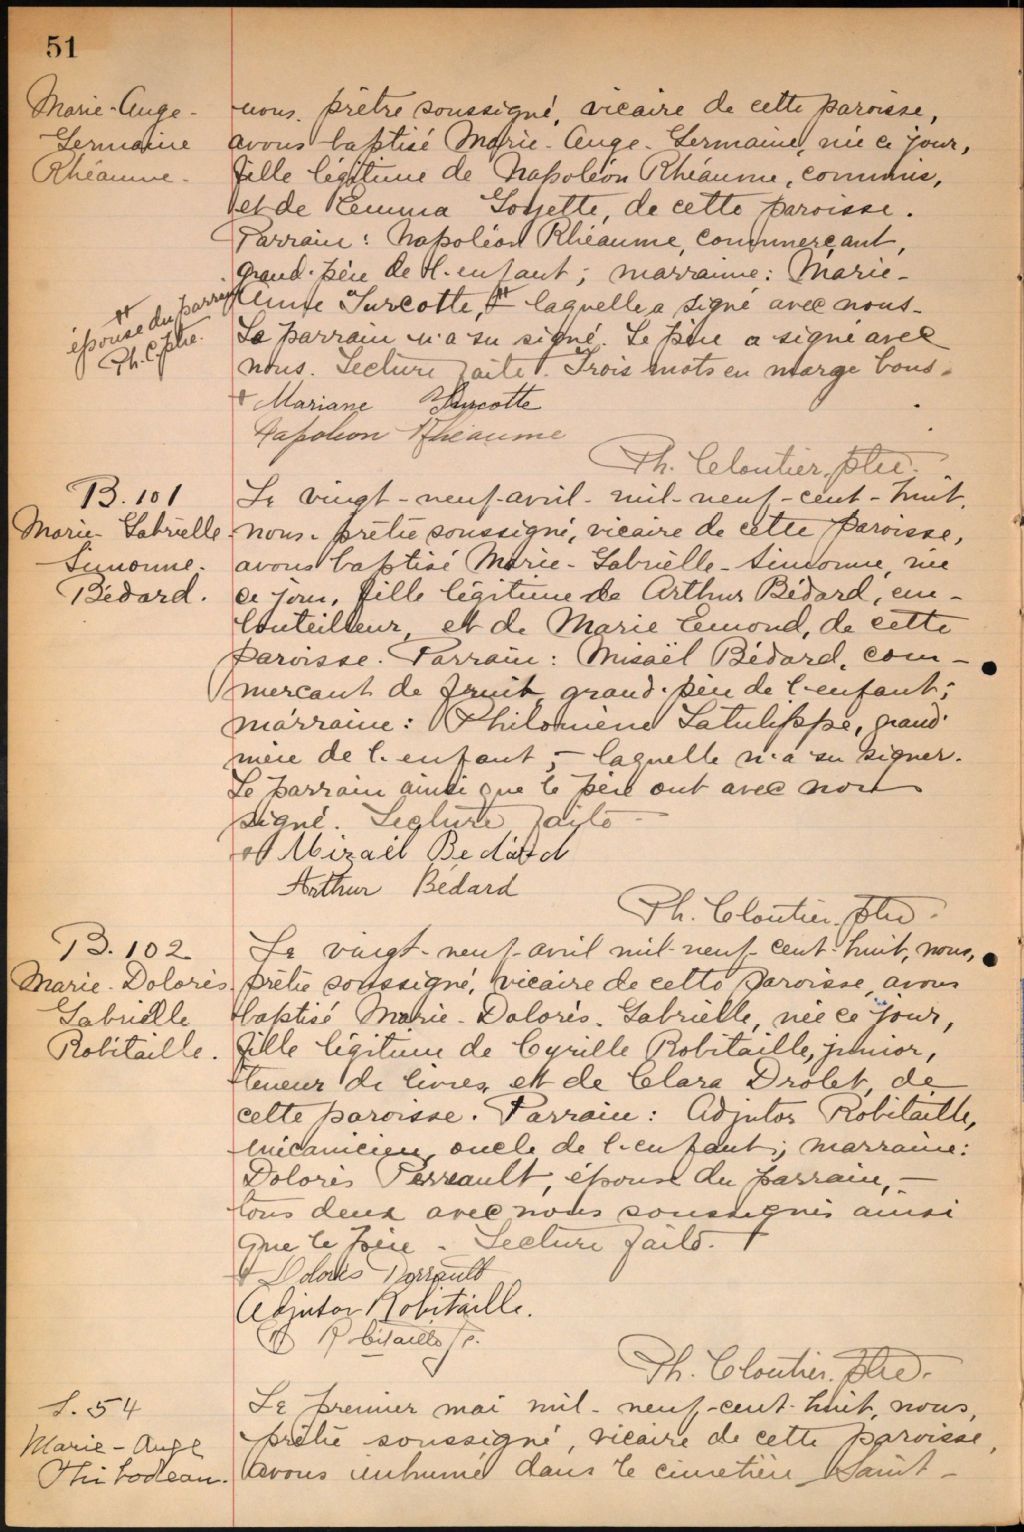 51
Marie-Ange-
Germaine
Rhéaume.
nous, prêtre soussigné, vicaire de cette paroisse,
avons baptisé Marie-Ange-Germaine, née ce jour,
fille légitime de Napoléon Rhéaume, commis,
et de Emma Goyette, de cette paroisse.
Parrain: Napoléon Rhéaume, commerçant,
grand-père de l'enfant; marraine: Marie-
Anne Turcotte, # laquelle a signé avec nous.
# épouse du parrain
Ph. C. ptre.
Le parrain n'a su signé. Le père a signé avec
nous. Lecture faite. Trois mots en marge bons.
+ Mariane Turcotte
Napoleon Rheaume
Ph. Cloutier, ptre.
B. 101
Marie-Gabrielle-
Simonne-
Bédard.
Le vingt-neuf-avril-mil-neuf-cent-huit,
nous, prêtre soussigné, vicaire de cette paroisse,
avons baptisé Marie-Gabrielle-Simonne, née
ce jour, fille légitime de Arthur Bédard, em-
bouteilleur, et de Marie Emond, de cette
paroisse. Parrain: Misaël Bédard, com-
mercant de fruit, grand-père de l'enfant;
marraine: Philomène Latulippe, grand'
mère de l'enfant, - laquelle n'a su signer.
Le parrain ainsi que le père ont avec nous
signé. Lecture faite -
+ Mizaël Bedard
Arthur Bédard
Ph. Cloutier, ptre.
B. 102
Marie-Dolorès
Gabrielle
Robitaille.
Le vingt-neuf-avril mil-neuf-cent-huit, nous,
prêtre soussigné, vicaire de cette paroisse, avons
baptisé Marie-Dolorès-Gabrielle, née ce jour,
fille légitime de Cyrille Robitaille, junior,
teneur de livres, et de Clara Drolet, de
cette paroisse. Parrain: Adjutor Robitaille,
mécanicien, oncle de l'enfant; marraine:
Dolorès Perreault, épouse du parrain, -
tous deux avec nous soussignés ainsi
que le père. Lecture faite.
+ Dolorès Perrault
Adjutor Robitaille.
C Robitaille Jr.
Ph. Cloutier, ptre.
S. 54
Marie-Ange
Thibodeau.
Le premier mai mil-neuf-cent-huit, nous,
prêtre soussigné, vicaire de cette paroisse,
avons inhumé dans le cimetière Saint-